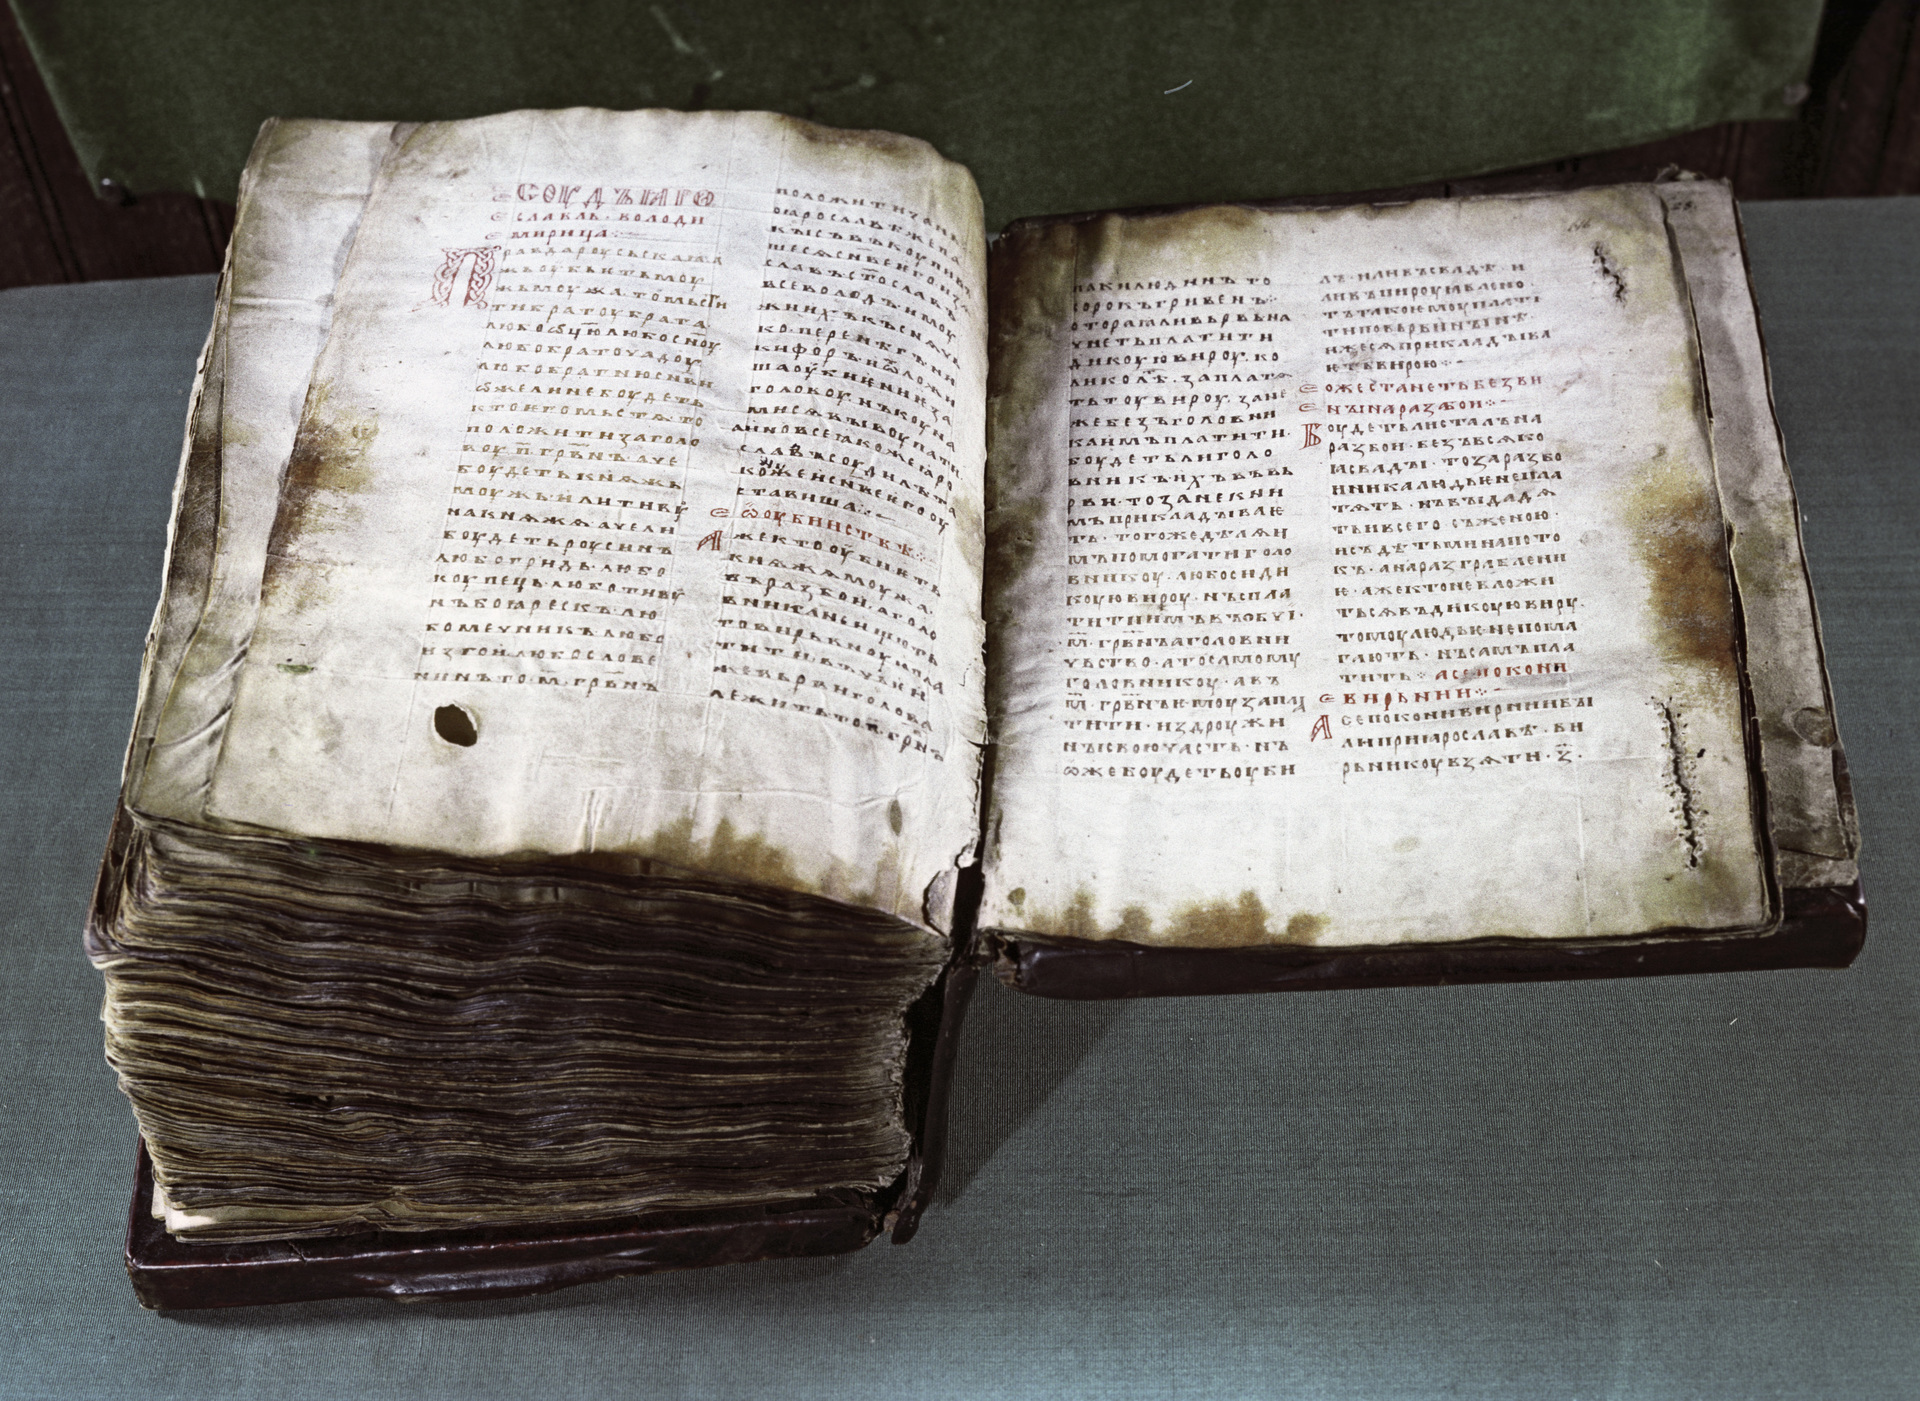 СОУДЪ ꙖРО
СЛАВЛЬ · ВОЛОДИ
МИРИЦА
ПРАВДА РОУСЬСКАꙖ
ЖЬ ОУБЬѤТЬ МОУ
ЖЬ МОУЖА · ТО МЬСТИ
ТИ БРАТОУ БРАТА
ЛЮБО ѾЦЮ ЛЮБО СНОУ
ЛЮБО БРАТОУЧАДОУ
ЛЮБО БРАТНЮ СНВИ
ѠЖЕ ЛИ НЕ БОУДЕТЬ
КТО ѤГО МЬСТѦ ТО
ПОЛОЖИТИ ЗА ГОЛО
ВОУ · П · ГРВНЪ АЧЕ
БОУДЕТЬ КНѦЖЬ
МОУЖЬ ИЛИ ТИВОУ
НА КНѦЖѦ АЧЕ ЛИ
БОУДЕТЬ РОУСИНЪ
ЛЮБО ГРИДЬ ЛЮБО
КОУПЕЦЬ ЛЮБО ТИВОУ
НЪ БОꙖРЕСКЪ ЛЮ
БО МЕЧНИКЪ ЛЮБО
ИЗГОИ ЛЮБО СЛОВЕ
НИНЪ ТО · М · ГРВНЪ
ПОЛОЖИТИ ЗА НЬ
ПО ꙖРОСЛАВѢ ЖЕ ПА
КЫ СЪВЪКОУПИВЪ
ШЕСѦ СНВЕ ѤГО ИЗѦ
СЛАВЪ СТОСЛАВЪ
ВСЕВОЛОДЪ И МОУ
ЖИ ИХЪ КЪСНѦЧЬ
КО ПЕРЕНѢГЪ НИ
КИФОРЪ И ѾЛОЖИ
ША ОУБИѤНИѤ ЗА
ГОЛОВОУ НЪ КОУНА
МИ СѦ ВЫКОУПАТИ
А ИНО ВСЕ ꙖКОЖЕ ꙖРО
СЛАВЪ СОУДИЛЪ ТА
КОЖЕ И СНВЕ ѤГО ОУ
СТАВИША
Ѡ ОУБИИСТВѢ
АЖЕ КТО ОУБИѤТЬ
КНѦЖѦ МОУЖА
ВЪ РАЗБОИ А ГОЛО
ВНИКА НЕ ИЩЮТЬ
ТО ВИРЬВНОУЮ ПЛА
ТИТИ ВЪ ЧЬѤИ
ЖЕ ВЬРВИ ГОЛОВА
ЛЕЖИТЬ ТО · П · ГРВНЪ
ПАКИ ЛЮДИНЪ ТО
СОРОКЪ ГРИВЕНЪ
КОТОРАꙖ ЛИ ВЬРВЬ НА
ЧНЕТЬ ПЛАТИТИ
ДИКОУЮ ВИРОУ · КО
ЛИКО ЛѢ · ЗАПЛАТѦ
ТЬ ТОУ ВИРОУ · ЗАНЕ
ЖЕ БЕЗЪ ГОЛОВНИ
КА ИМЪ ПЛАТИТИ
БОУДЕТЬ ЛИ ГОЛО
ВНИКЪ ИХЪ ВЪ ВЬ
РВИ · ТО ЗАНЕ К НИ
МЪ ПРИКЛАДЫВАѤ
ТЬ · ТОГО ЖЕ ДѢЛѦ И
МЪ ПОМОГАТИ ГОЛО
ВНИКОУ · ЛЮБО СИ ДИ
КОУЮ ВИРОУ · НЪ СПЛА
ТИТИ ИМЪ ВЪ ОБЧИ
М · ГРВНЪ А ГОЛОВНИ
ЧЬСТВО · А ТО САМОМУ
ГОЛОВНИКОУ · А ВЪ
М · ГРВНЪ ѤМОУ ЗАПЛА
ТИТИ · ИЗ ДРОУЖИ
НЫ СВОЮ ЧАСТЬ · НЪ
ѠЖЕ БОУДЕТЬ ОУБИ
ЛЪ · ИЛИ ВЪ СВАДѢ · И
ЛИ В ПИРОУ ꙖВЛЕНО
ТЪ ТАКО ѤМОУ ПЛАТИ
ТИ ПО ВЬРВИНЫНѢ
ИЖЕ СѦ ПРИКЛАДЫВА
ЮТЬ ВИРОЮ
ОЖЕ СТАНЕТЬ БЕЗ ВИ
НЫ НА РАЗБОИ
БОУДЕТЬ ЛИ СТАЛЪ НА
РАЗБОИ · БЕЗЪ ВСѦКО
Ꙗ СВАДЫ · ТО ЗА РАЗБО
ИНИКА ЛЮДЬѤ НЕ ПЛА
ТѦТЬ · НЪ ВЫДАДѦ
ТЬ И ВСЕГО · СЪ ЖЕНОЮ
И СЪ ДѢТЬМИ НА ПОТО
КЪ · А НА РАЗГРАБЛЕНИ
Ѥ · АЖЕ КТО НЕ ВЛОЖИ
ТЬСѦ ВЪ ДИКОУЮ ВИРУ
ТОМОУ ЛЮДЬѤ НЕ ПОМА
ГАЮТЬ · НЪ САМЪ ПЛА
ТИТЬ · А СЕ ПОКОНИ
ВИРЬНИИ
А СЕ ПОКОНИ ВИРНИИ БЫ
ЛИ ПРИ ꙖРОСЛАВѢ · ВИ
РЬНИКОУ ВЗѦТИ · З ·